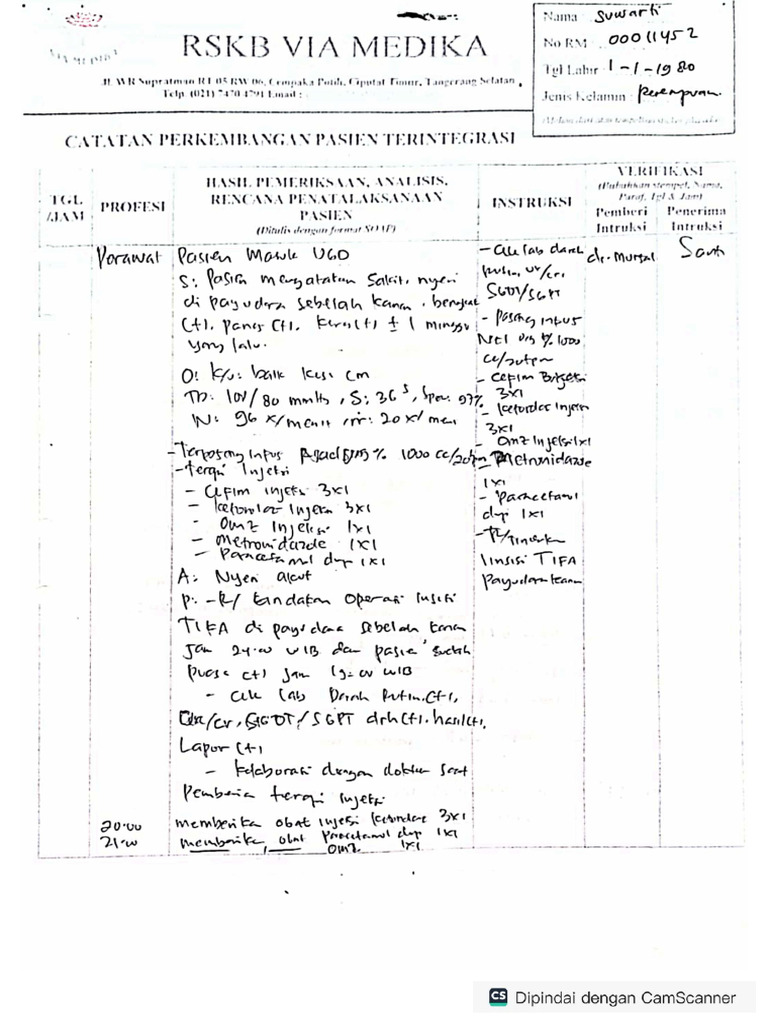 VIA MEDIKA
RSKB VIA MEDIKA
Jl. WR Supratman RT 05 RW 06, Cempaka Putih, Ciputat Timur, Tangerang Selatan
Telp. (021) 7470 4791 Email :
Nama : Suwarti
No RM : 00011452
Tgl Lahir : 1-1-1980
Jenis Kelamin : Perempuan
CATATAN PERKEMBANGAN PASIEN TERINTEGRASI
TGL /JAM
PROFESI
HASIL PEMERIKSAAN, ANALISIS, RENCANA PENATALAKSANAAN PASIEN
(Ditulis dengan format SOAP)
INSTRUKSI
VERIFIKASI
(Bubuhkan stempel, Nama, Paraf, Tgl & Jam)
Pemberi Intruksi
Penerima Intruksi
Perawat
Pasien Masuk UGD
S: Pasien mengatakan Sakit, nyeri
di payudara sebelah kanan,
(+), panas (+), keras (+) ± 1 minggu
yang lalu.
O: k/u: baik kes: cm
TD: 100/80 mmHg, S: 36⁵, Spo: 97%
N: 96 x/menit, rr: 20 x/men
- Terpasang Infus 1000 cc/
- Terapi Injeksi
- Cefim injeksi 3x1
- ketorolac Injeksi 3x1
- OMZ Injeksi 1x1
- Metronidazole 1x1
- Paracetamol drip 1x1
A: Nyeri akut
P: - R/ tindakan Operasi Insisi
TIFA di payudara sebelah kanan
Jam 24.00 WIB dan pasien sudah
puasa (+) jam WIB
- Cek lab Darah Rutin (+),
Ur/cr, SGOT/SGPT drh (+). hasil (+).
Lapor (+)
- kolaborasi dengan dokter saat
Pemberian terapi injeksi
20.00 memberikan obat injeksi ketorolac 3x1
21.00 memberikan obat Paracetamol drip 1x1
OMZ 1x1
- Cek lab darah
rutin, ur/cr,
SGOT/SGPT
- Pasang infus
1000
cc/
- Cefim Injeksi
3x1
- ketorolac Injeksi
3x1
- OMZ Injeksi 1x1
- Metronidazole
1x1
- Paracetamol
drip 1x1
- R/ tindakan
Insisi TIFA
payudara kanan
dr. Mursal
Santi
CS Dipindai dengan CamScanner